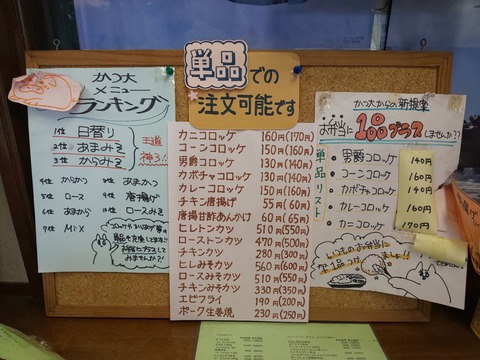 かつ大
メニュー
ランキング
1位 日替り
2位 あまみそ
3位 からみそ
王道
神3!
4位 からかつ
5位 ロース
6位 あまから
7位 MiX
あまかつ
唐揚げ
ロースみそ
コロッケ
単品も充実してます
弁当にプラスして
みませんか?
単品での
注文可能です
カニコロッケ 160円(170円)
コーンコロッケ 150円(160円)
男爵コロッケ 130円(140円)
カボチャコロッケ 130円(140円)
カレーコロッケ 150円(160円)
チキン唐揚げ 55円(60円)
唐揚甘酢あんかけ 60円(65円)
ヒレトンカツ 510円(550円)
ローストンカツ 470円(500円)
チキンカツ 280円(300円)
ヒレみそカツ 560円(600円)
ロースみそカツ 510円(550円)
チキンみそカツ 330円(350円)
エビフライ 190円(200円)
ポーク生姜焼 230円(250円)
かつ大からの新提案
お弁当に1品プラスしませんか??
単品リスト
・男爵コロッケ 140円
・コーンコロッケ 160円
・カボチャコロッケ 140円
・カレーコロッケ 160円
・カニコロッケ 170円
いつものお弁当に
ます!!